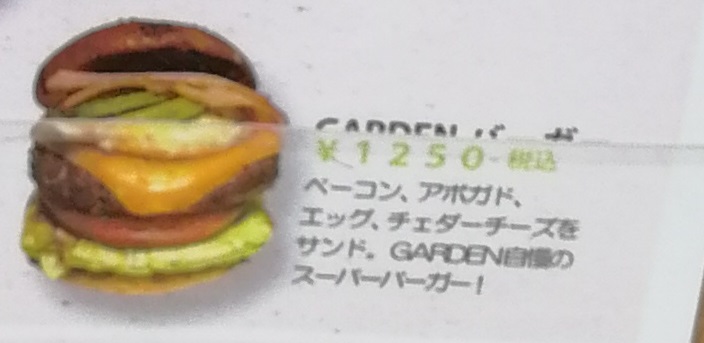 GARDEN バーガー
￥1250-税込
ベーコン、アボガド、
エッグ、チェダーチーズを
サンド。GARDEN自慢の
スーパーバーガー！